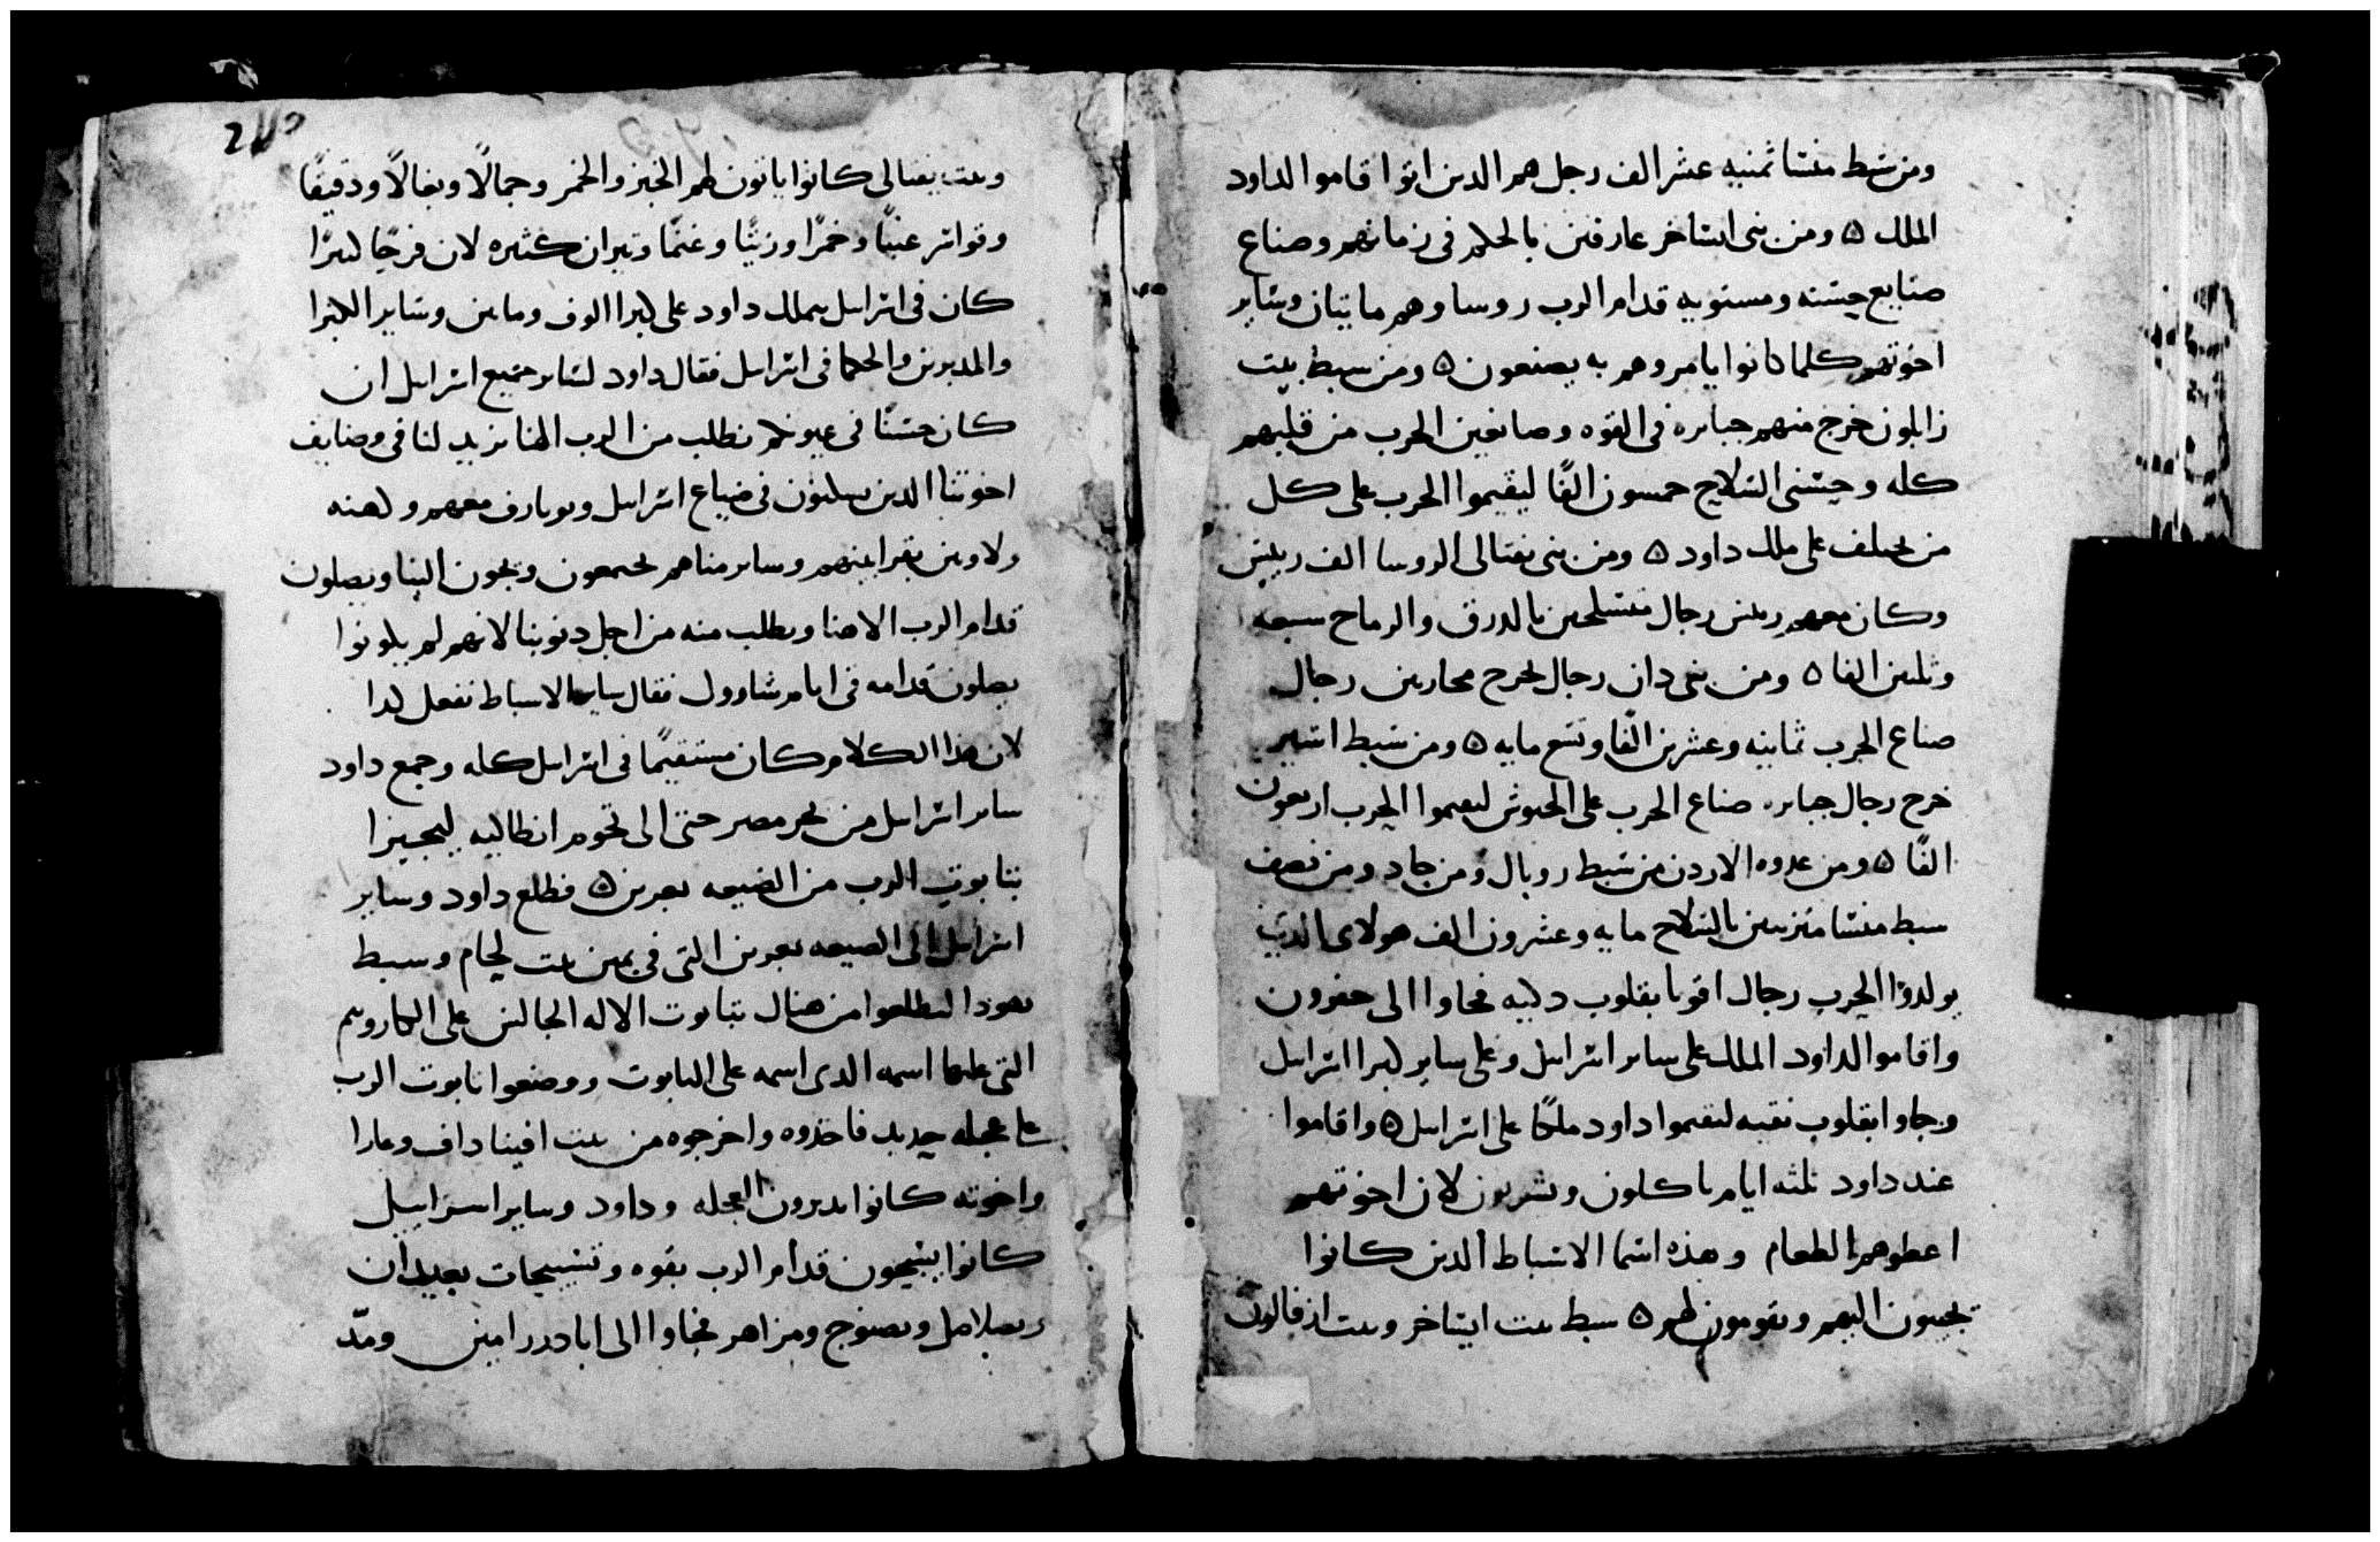 ومن شبط منشا ثمنيه عشر الف رجل هم الدين اتوا اقاموا لداود
الملك ٥ ومن بني ايشاخر عارفين بالحكم في زمانهم وصناع
صنايع حسنه ومستويه قدام الرب روسا وهم مايتان وساير
اخوتهم كلما كانوا يامروهم به يصنعون ٥ ومن سبط بيت
زابلون خرج منهم جبابره في القوه وصانعين الحرب من قلبهم
كله وحسني السلاح خمسون الفًا ليقيموا الحرب على كل
من يختلف على ملك داود ٥ ومن بني نفتالي الروسا الف رييس
وكان معهم رجال متسلحين بالدرق والرماح سبعه
وثلثين الفا ٥ ومن بني دان رجال محاربين رجال
صناع الحرب ثمانيه وعشرين الفًا وتسع مايه ٥ ومن سبط اشير
خرج رجال جبابره صناع الحرب على الجيوش ليقيموا الحرب اربعون
الفًا ٥ ومن عدوه الاردن من سبط روبال ومن جاد ومن نصف
سبط منشا متزينين بالسلاح مايه وعشرون الف هولاى الدين
الحرب رجال اقويا بقلوب دكيه فجاوا الى حفرون
واقاموا لداود الملك على ساير اسراييل وعلى ساير كبرا اسراييل
وجاوا بقلوب نقيه ليقيموا داود ملكًا على اسراييل ٥ واقاموا
عند داود ثلثه ايام ياكلون ويشربون لان اخوتهم
اعطوهم الطعام وهذه اسما الاسباط الدين كانوا
يجيبون اليهم ويقومون لهم ٥ سبط بيت ايشاخر وبيت ازفالون
وبيت نفتالي كانوا ياتون لهم الخبز والخمر وجمالًا وبغالًا ودقيقًا
عنبًا وخمرًا وزيتًا وغنمًا وتيران كثيره لان فرحًا كبيرًا
كان في اسراييل بملك داود على كبرا الوف ومايين وساير الكبرا
والمدبرين والحكما في اسراييل فقال داود لساير جميع اسراييل ان
كان حسنًا في عيونكم نطلب من الرب الهنا يزيد لنا في
اخوتنا الدين يسكنون في ضياع اسراييل معهم وكهنه
ولاوين بقرابينهم وساير مناهم يجتمعون ويجون الينا ويصلون
قدام الرب الاهنا ويطلب منه من اجل دنوبنا لانهم لم يكونوا
يصلون قدامه في ايام شاوول فقال ساير الاسباط نفعل كدا
لان هذا الكلام كان مستقيمًا في اسراييل كله وجمع داود
ساير اسراييل من بحر مصر حتى الى تخوم انطاكيه ليجيزا
بتابوت الرب من الضيعه يعرين ٥ فطلع داود وساير
اسراييل الى الضيعه يعرين التي في يمين بيت لحام وسبط
يهودا ليطلعوا من هناك بتابوت الاله الجالس على الكاروبيم
التي عليها اسمه الدى اسمه على التابوت ووضعوا تابوت الرب
على عجله جديد فاخدوه واخرجوه من بيت افيناداف وعازا
واخوته كانوا يديرون العجله وداود وساير اسراييل
كانوا يسبحون قدام الرب بقوه وتسبيحات بعيدان
وبصلاصل وبصنوج ومزاهر فجاوا الى ومدّ